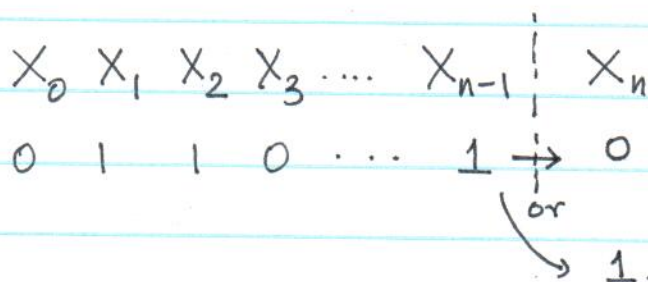 X₀ X₁ X₂ X₃ .... Xₙ₋₁ Xₙ
0 1 1 0 .... 1 → 0
or
1.